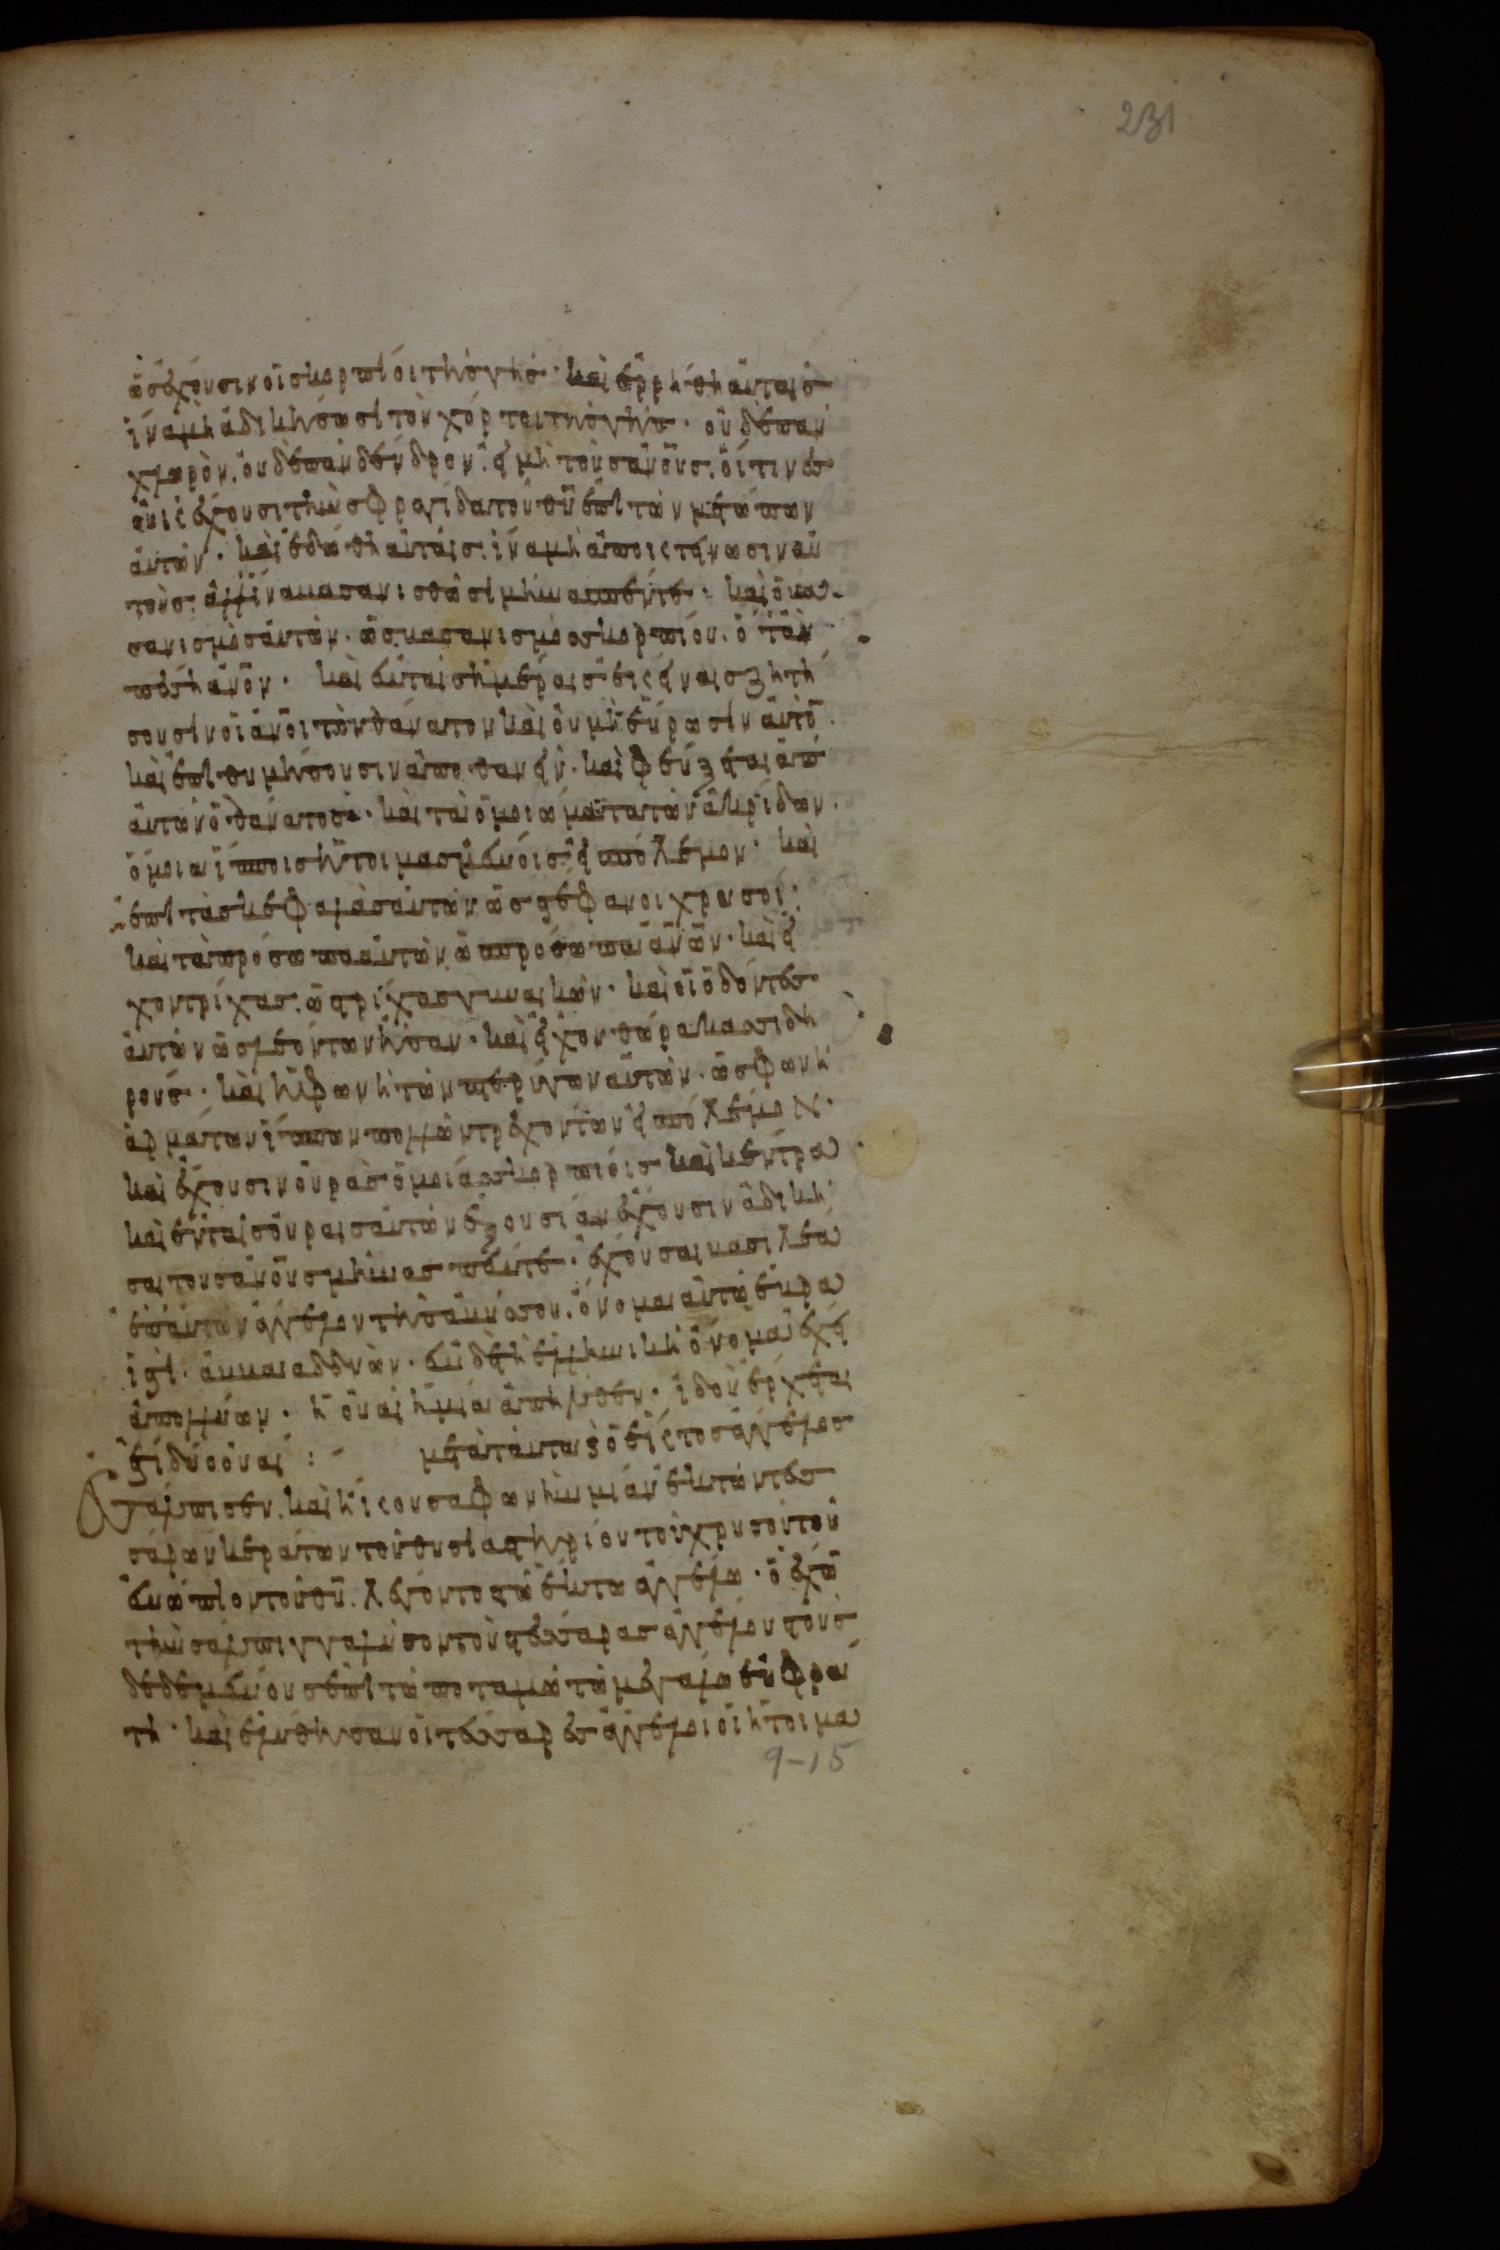 231
ὡς ἔχουσιν οἱ σκορπίοι τῆς γῆς· καὶ ἐρρήθη αὐταῖς
ἵνα μὴ ἀδικήσωσι τὸν χόρτον τῆς γῆς· οὐδὲ πᾶν
χλωρὸν· οὐδὲ πᾶν δένδρον· εἰ μὴ τοὺς ἀνους· οἵτινες
οὐκ ἔχουσι τὴν σφραγίδα τοῦ θυ ἐπὶ τῶν μετώπων
αὐτῶν· καὶ ἐδόθη αὐταῖς· ἵνα μὴ ἀποκτένωσιν αὐ
τούς· ἀλλ' ἵνα βασανισθῶσι μῆνας πέντε· καὶ ὁ βα
σανισμὸς αὐτῶν· ὡς βασανισμὸς σκορπίου· ὅταν
παίσῃ ἀνον· καὶ ἐν ταῖς ἡμέραις ἐκείναις ζητή
σουσιν οἱ ἀνοι τὸν θάνατον καὶ οὐ μὴ εὕρωσιν αὐτὸ
καὶ ἐπιθυμήσουσιν ἀποθανεῖν· καὶ φεύξεται ἀπ
αὐτῶν ὁ θάνατος· καὶ τὰ ὁμοιώματα τῶν ἀκρίδων
ὅμοια ἵπποις ἡτοιμασμένοις εἰς πόλεμον· καὶ
ἐπὶ τὰς κεφαλὰς αὐτῶν ὡς στέφανοι χρυσοί·
καὶ τὰ πρόσωπα αὐτῶν ὡς πρόσωπα ἀνων· καὶ εἶ
χον τρίχας· ὡς τρίχας γυναικῶν· καὶ οἱ ὀδόντες
αὐτῶν ὡς λεόντων ἦσαν· καὶ εἶχον θώρακας σιδη
ροῦς· καὶ ἡ φωνὴ τῶν πτερύγων αὐτῶν· ὡς φωνὴ
ἁρμάτων ἵππων πολλῶν τρεχόντων εἰς πόλεμον·
καὶ ἔχουσιν οὐρὰς ὁμοίας σκορπίοις καὶ κέντρα
καὶ ἐν ταῖς οὐραῖς αὐτῶν ἐξουσίαν ἔχουσιν ἀδικῆ
σαι τοὺς ἀνους μῆνας πέντε· ἔχουσαι βασιλέα
ἐπ' αὐτῶν ἄγγελον τῆς ἀβύσσου· ὄνομα αὐτῷ ἑβρα
ϊστὶ· ἀββααδδὼν· ἐν δὲ τῇ ἑλληνικῇ ὄνομα ἔχει
ἀπολλύων· ἡ οὐαὶ ἡ μία ἀπῆλθεν· ἰδοὺ ἔρχεται
ἔτι δύο οὐαί :- μετὰ ταῦτα καὶ ὁ ἕκτος ἄγγελος
ἐσάλπισεν· καὶ ἤκουσα φωνὴν μίαν ἐκ τῶν τεσ
σάρων κεράτων τοῦ θυσιαστηρίου τοῦ χρυσοῦ τοῦ
ἐνώπιον τοῦ θυ· λέγοντος τῷ ἕκτῳ ἀγγέλῳ· ὁ ἔχω
τὴν σάλπιγγα λῦσον τοὺς τέσσαρας ἀγγέλους τοὺς
δεδεμένους ἐπὶ τῷ ποταμῷ τῷ μεγάλῳ εὐφρά
τῃ· καὶ ἐλύθησαν οἱ τέσσαρες ἄγγελοι οἱ ἡτοιμα
9-15